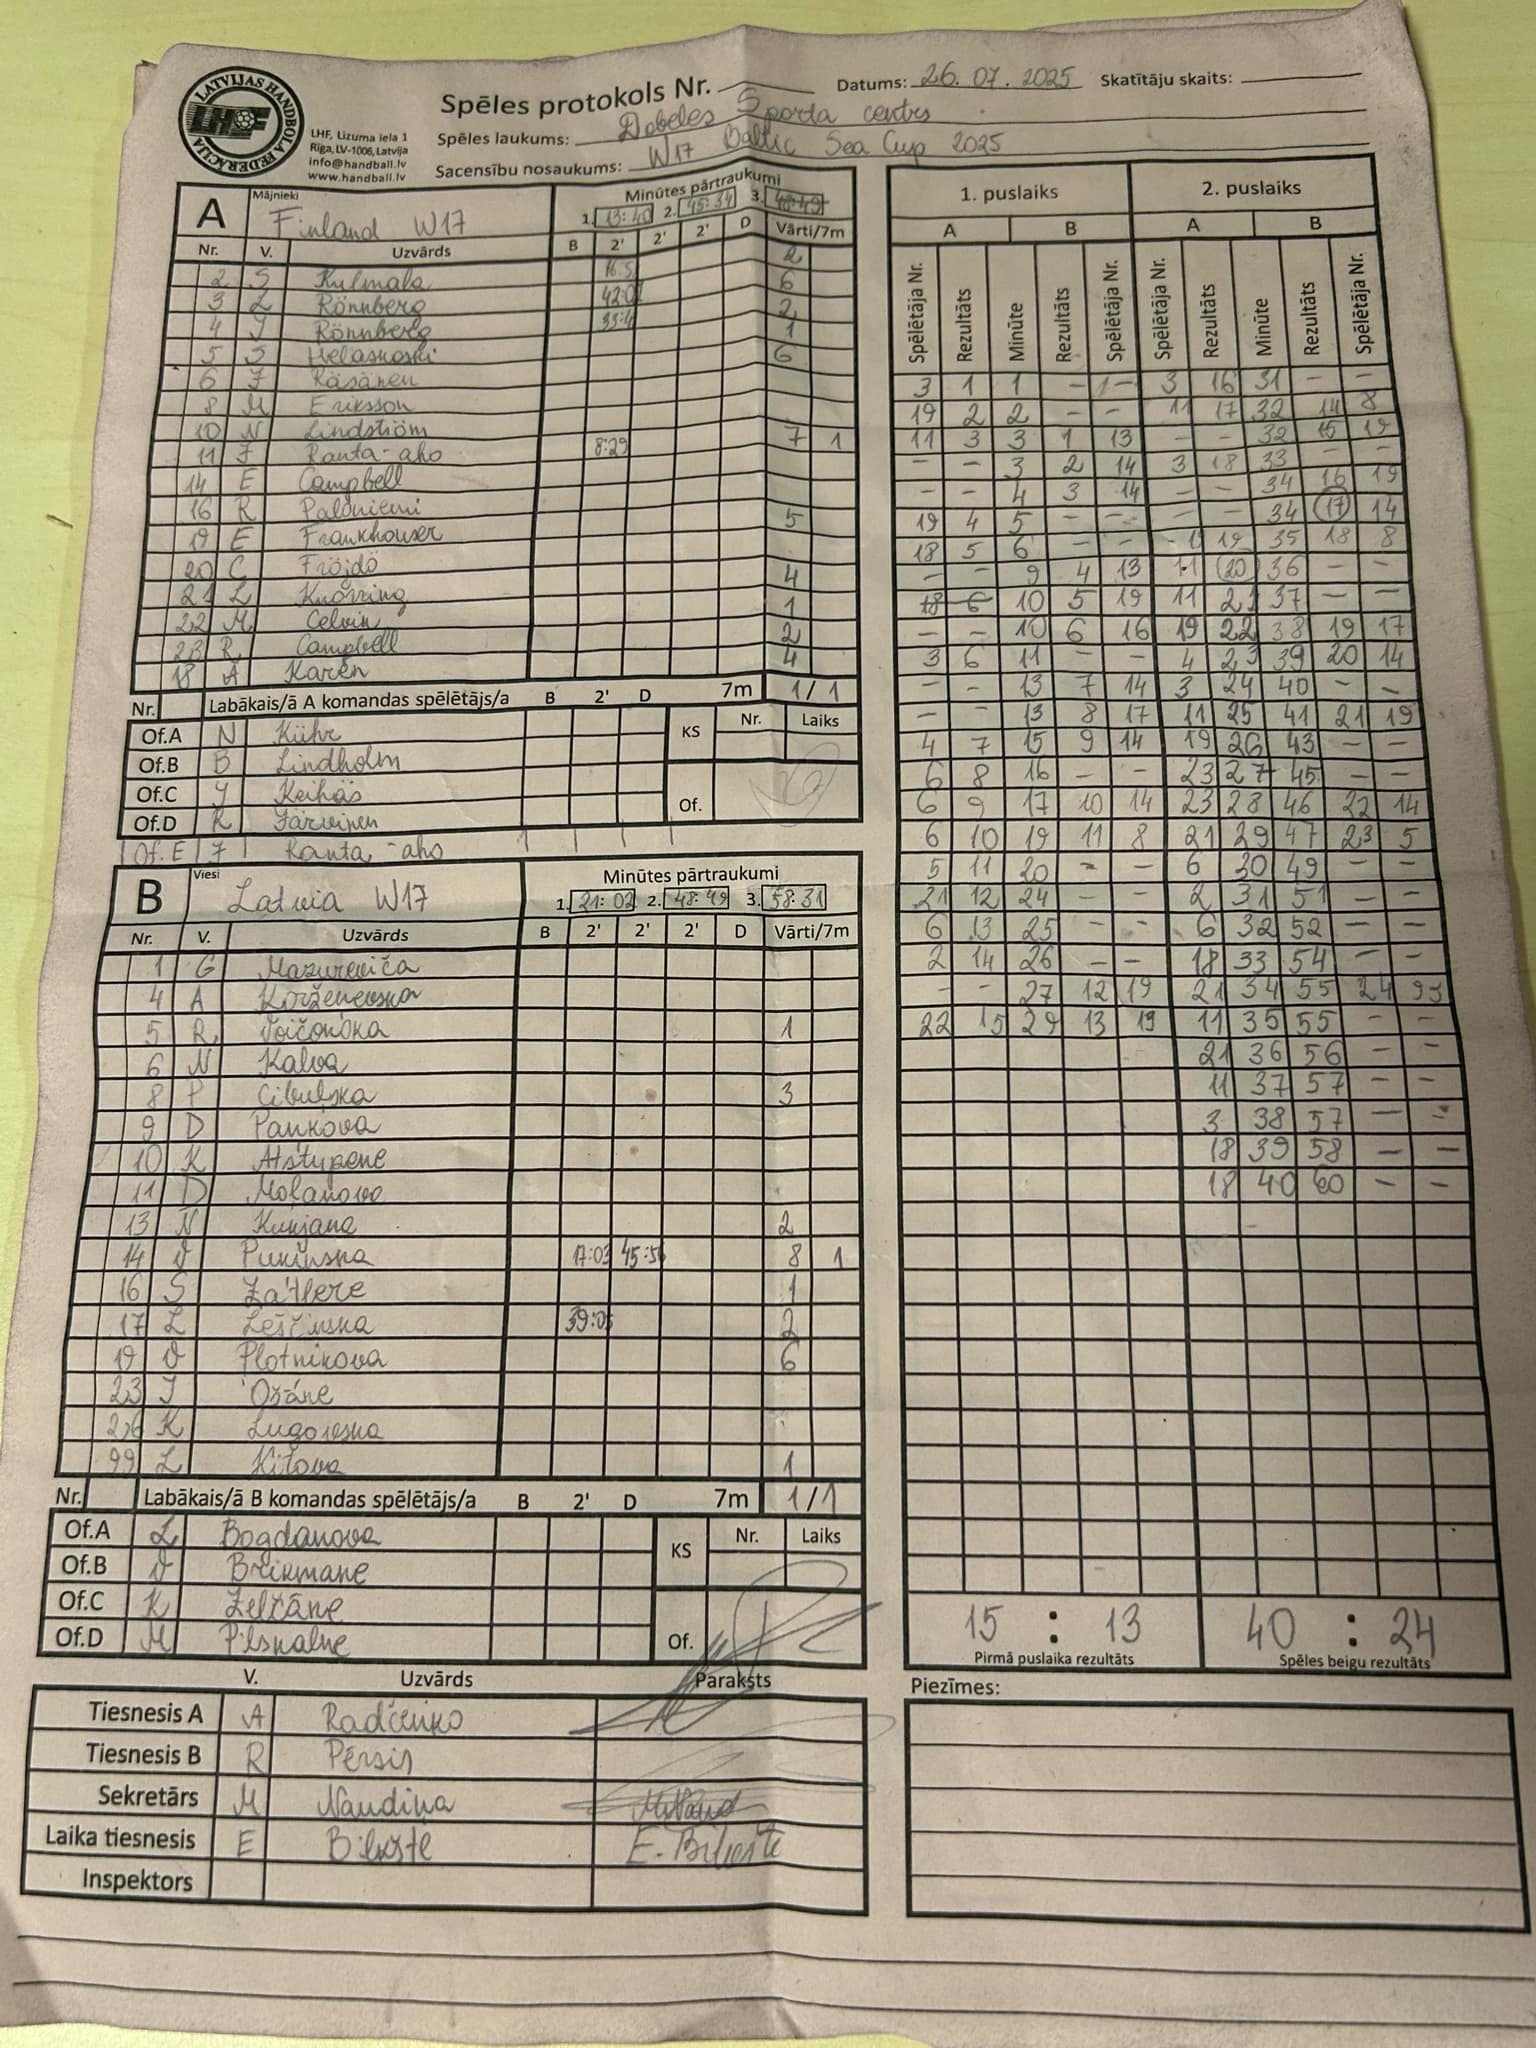 LATVIJAS HANDBOLA FEDERĀCIJA
LHF
LHF, Lizuma iela 1
Rīga, LV-1006, Latvija
info@handball.lv
www.handball.lv
Spēles protokols Nr. Datums: 26.07.2025 Skatītāju skaits:
Spēles laukums: Dobeles Sporta centrs
Sacensību nosaukums: W17 Baltic Sea Cup 2025
A Mājnieki Finland W17
Minūtes pārtraukumi
1. 13:40 2. 45:34 3.
Nr. V. Uzvārds B 2' 2' 2' D Vārti/7m
2 S Kulmala 2
3 L Rönnberg 42:02 6
4 J Rönnberg 2
5 S Helaskoski 1
6 J Räsänen 6
8 M Eriksson
10 N Lindström
11 J Ranta-aho 8:29 7 1
14 E Campbell
16 R Paloniemi
19 E Frankhouser 5
20 C Fröjdö
21 L Knorring 4
22 M Celvin 1
23 R Campbell 2
18 A Karen 4
Nr. Labākais/ā A komandas spēlētājs/a B 2' D 7m 1/1
Of.A N Kühr KS Nr. Laiks
Of.B B Lindholm
Of.C J Keihäs Of.
Of.D K Järvinen
Of.E J Ranta-aho
B Viesi Latvia W17
Minūtes pārtraukumi
1. 21:02 2. 48:49 3. 58:31
Nr. V. Uzvārds B 2' 2' 2' D Vārti/7m
1 G Mazureviča
4 A Korženevska
5 R Voičonoka 1
6 N Kalva
8 P Cibuļska 3
9 D Pankova
10 K Atstupene
11 D Moļanova
13 N Kunjana 2
14 V Pukinska 17:03 45:56 8 1
16 S Zaļlere 1
17 L Leščinska 39:05 2
19 V Plotnikova 6
23 J Ozāne
26 K Lugovska
99 L Kitova 1
Nr. Labākais/ā B komandas spēlētājs/a B 2' D 7m 1/1
Of.A L Bogdanova KS Nr. Laiks
Of.B V Brikmane
Of.C K Zeltāne Of.
Of.D M Pilskalne
V. Uzvārds Paraksts
Tiesnesis A A Radčenko
Tiesnesis B R Pērsis
Sekretārs M Naudiņa
Laika tiesnesis E Bikste E. Bikste
Inspektors
1. puslaiks 2. puslaiks
A B A B
Spēlētāja Nr. Rezultāts Minūte Rezultāts Spēlētāja Nr. Spēlētāja Nr. Rezultāts Minūte Rezultāts Spēlētāja Nr.
3 1 1 - - 3 16 31 - -
19 2 2 - - 11 17 32 14 8
11 3 3 1 13 - - 32 15 19
- - 3 2 14 3 18 33 - -
- - 4 3 14 - - 34 16 19
19 4 5 - - - - 34 17 14
18 5 6 - - 19 35 18 8
- - 9 4 13 11 20 36 - -
18 6 10 5 19 11 21 37 - -
- - 10 6 16 19 22 38 19 17
3 6 11 - - 4 23 39 20 14
- - 13 7 14 3 24 40 - -
- - 13 8 17 11 25 41 21 19
4 7 15 9 14 19 26 43 - -
6 8 16 - - 23 27 45 - -
6 9 17 10 14 23 28 46 22 14
6 10 19 11 8 21 29 47 23 5
5 11 20 - - 6 30 49 - -
21 12 24 - - 2 31 51 - -
6 13 25 - - 6 32 52 - -
2 14 26 - - 18 33 54 - -
- - 27 12 19 21 34 55 24 99
22 15 29 13 19 11 35 55 - -
21 36 56 - -
11 37 57 - -
3 38 57 - -
18 39 58 - -
18 40 60 - -
15 : 13 40 : 24
Pirmā puslaika rezultāts Spēles beigu rezultāts
Piezīmes: